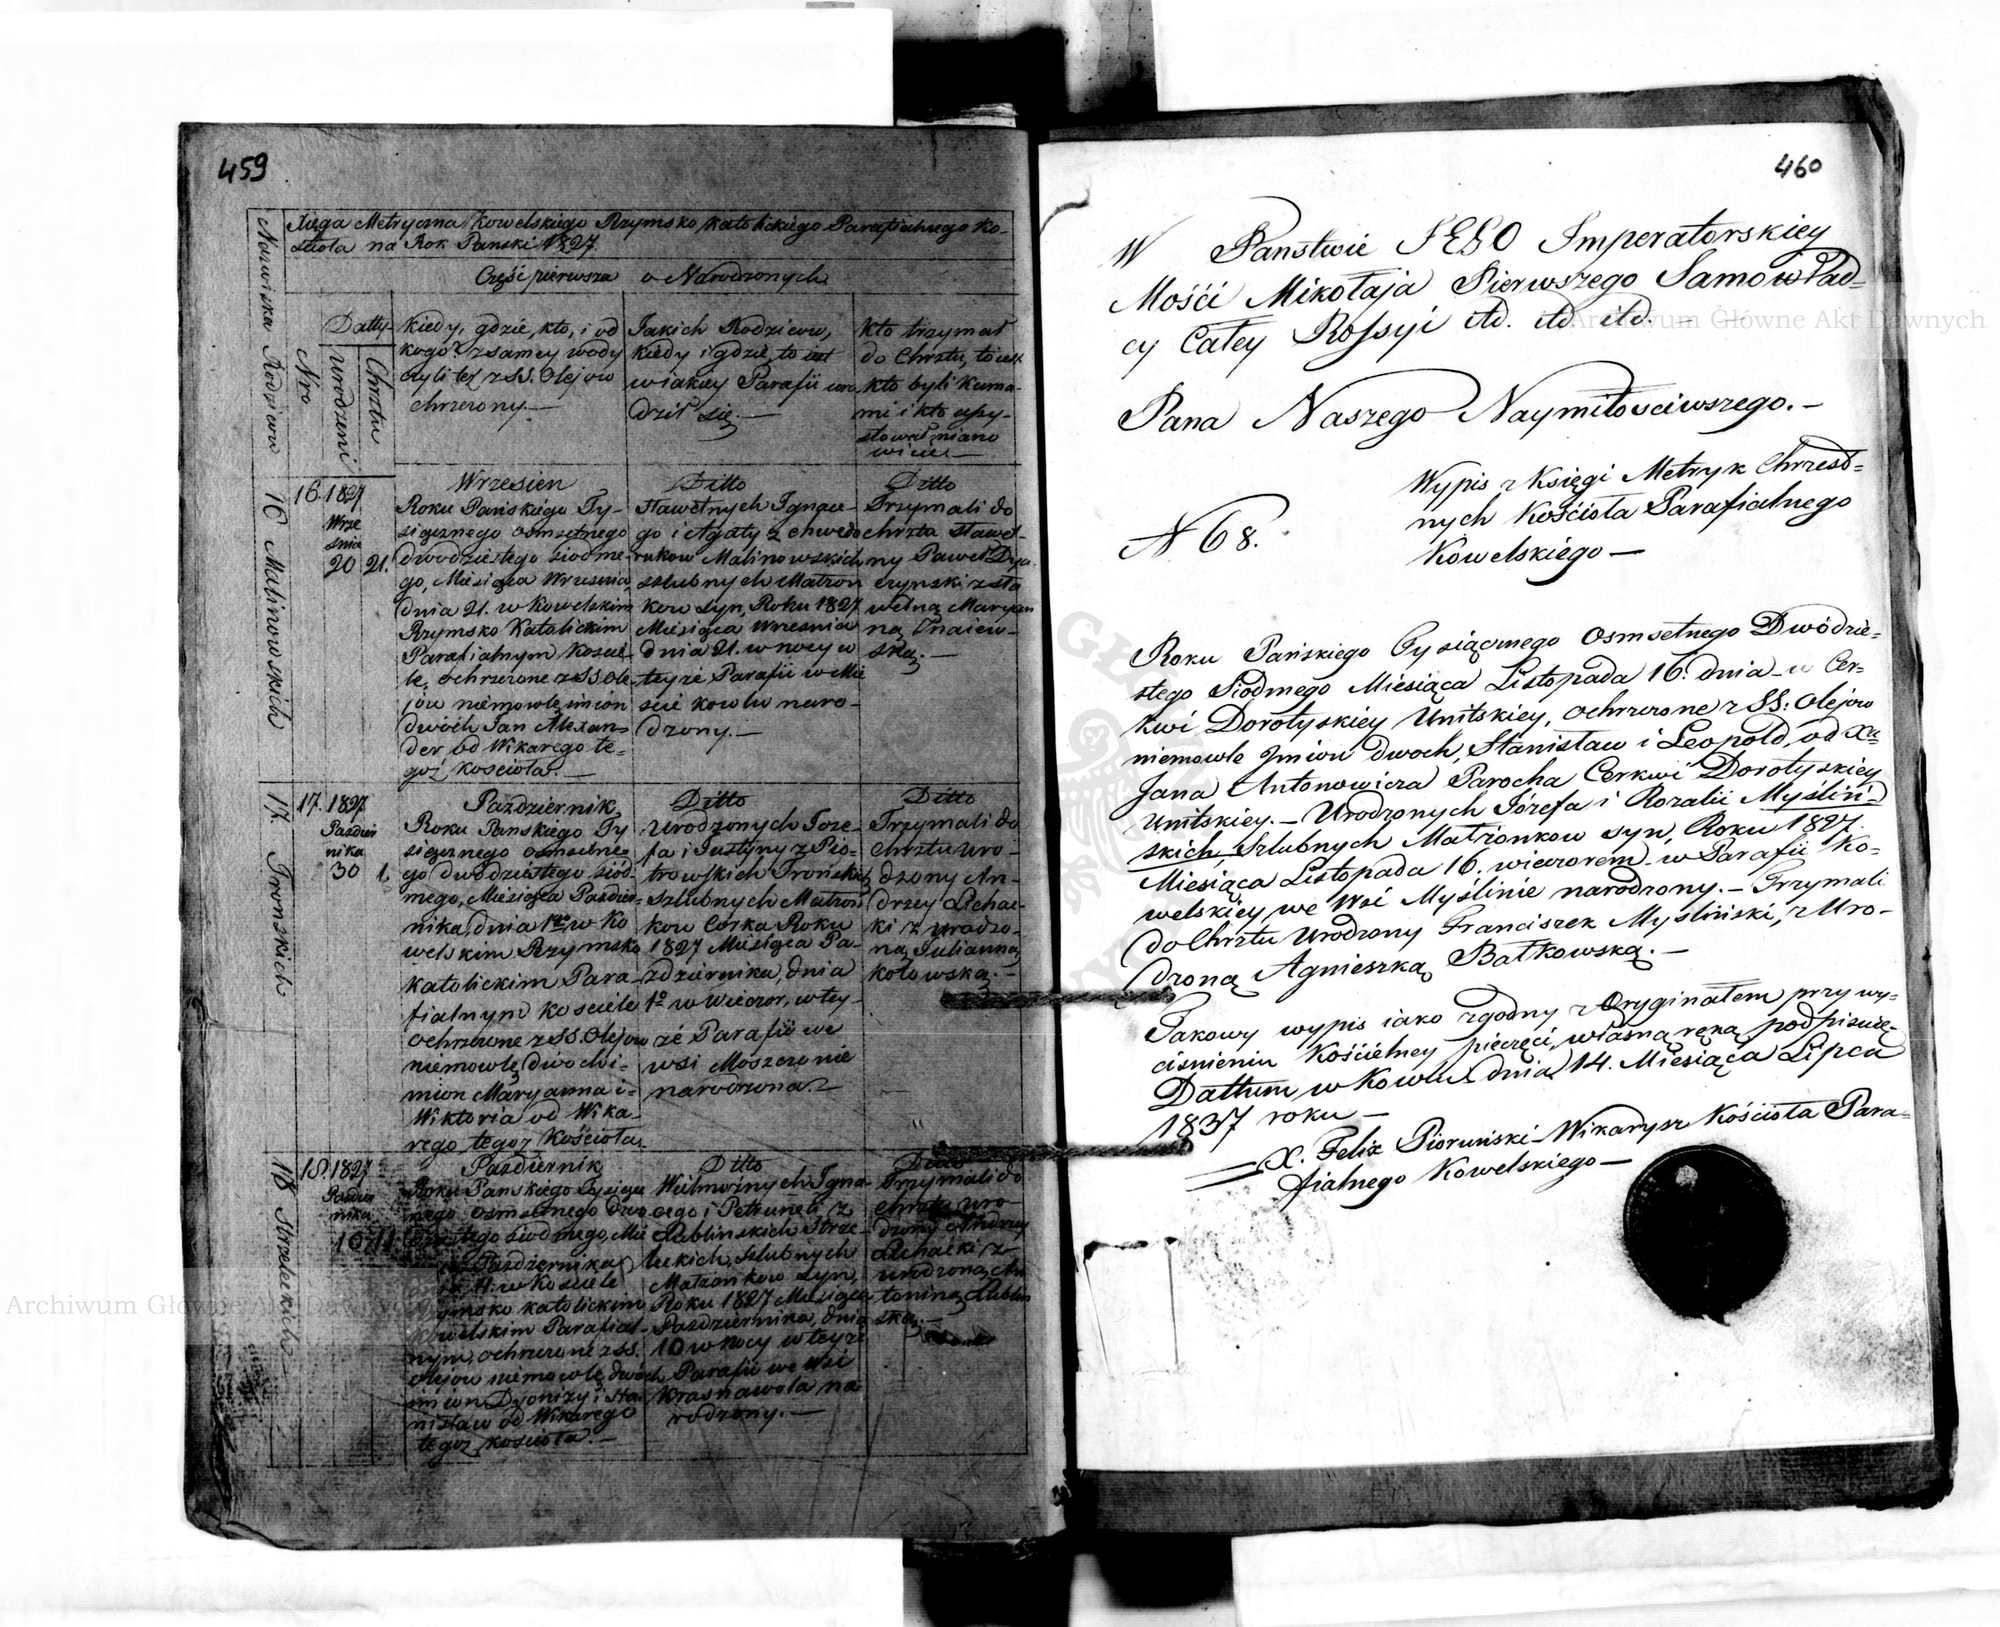 459
Xięga Metryczna Kowelskiego Rzymsko Katolickiego Parafialnego Ko-
ścioła na Rok Panski 1827.
Część pierwsza o Narodzonych
Nazwiska Rodziców
Nro
Datty
Urodzeni
Chrztu
Kiedy, gdzie, kto, i od
kogo z samey wody
czyli też z SS. Olejow
chrzczony.—
Jakich Rodzicow,
kiedy i gdzie, to iest
w iakiey Parafii uro
dził się.—
Kto trzymał
do Chrztu, to iest
kto byli Kuma-
mi i kto assy-
stował miano
wicie.—
16 Malinowskich
16.
1827
Wrze
snia
20
21.
Wrzesien
Roku Pańskiego Ty-
siącznego osmsetnego
dwodziestego siodme-
go, Miesiąca Wrzesnia,
dnia 21. w Kowelskim
Rzymsko Katolickim
Parafialnym Koscie-
le, ochrzczone z SS. Ole-
jow niemowlę imion
dwoch Jan Alexan-
der od Wikarego te-
goż koscioła.—
Ditto
Sławetnych Ignace-
go i Agaty z Chwedo
rukow Malinowskich
szlubnych Małżon
kow syn, Roku 1827
Miesiąca Wrzesnia
dnia 21. w nocy w
teyże Parafii w Mie
scie Kowlu naro-
dzony.—
Ditto
Trzymali do
chrztu Sławet-
ny Paweł
z Sła
wetną Maryan
ną
ską.—
17. Trońskich
17.
1827
Pazdzier
nika
30
1.
Pazdziernik
Roku Panskiego Ty-
siącznego osmsetne-
go dwodziestego siód-
mego, Miesiąca Pazdzier-
nika, dnia 1go w Ko
welskim Rzymsko
Katolickim Para-
fialnym kosciele
ochrzczone z SS. Olejow
niemowlę dwoch i-
mion Maryanna i-
Wiktoria od Wika-
rego tegoz Kościoła
Ditto
Urodzonych Joze-
fa i Justyny z Pio-
trowskich Trońskich
Szlubnych Małżon
kow Corka Roku
1827 Miesiąca Pa-
zdziernika, dnia
1o w Wieczor, w tey-
że Parafii we
wsi Moszczonie
narodzona.—
Ditto
Trzymali do
Chrztu Uro-
dzony An-
drzey Lichac-
ki z urodzo-
ną Julianną
Kołowską.—
18 Strzeleckich
18.
1827
Pazdzier
nika
10
11
Pazdziernik
Roku Panskiego Tysiącz
nego osmsetnego dwo
dziestego siodmego, Mie
Pazdziernika
11. w Kosciele
Rzymsko katolickim
Kowelskim Parafial-
nym, ochrzczone z SS.
Olejow niemowlę dwóch
imion Dyonizy i Sta-
nisław od Wikarego
tegoz koscioła.—
Ditto
Wielmożnych Igna-
cego i Petruneli z
Lublinskich Strze-
leckich, Szlubnych
Małżonkow Syn,
Roku 1827 Miesiąca
Pazdziernika, dnia
10 w nocy w teyże
Parafii we Wsi
Krasnawola na
rodzony.—
Ditto
Trzymali do
chrztu uro-
dzony Andrzey
Lichacki z
urodzoną An
toniną Lublin
ską.—
460
W Państwie JEGO Imperatorskiey
Mośći Mikołaja Pierwszego Samowład-
cy Całey Rossyi itd. itd. itd.—
Pana Naszego Naymiłosciwszego.—
N 68.
Wypis z Księgi Metryk Chrzest-
nych Kościoła Parafialnego
Kowelskiego—
Roku Pańskiego Tysiącznego Osmsetnego Dwódzie-
stego Siodmego Miesiąca Listopada 16. dnia w Cer-
kwi Dorotyskiey Unitskiey, ochrzczone z SS: Olejow
niemowle Jmion dwoch, Stanisław i Leopold, od Xa
Jana Antonowicza Parocha Cerkwi Dorotyskiey
Unitskiey.— Urodzonych Józefa i Rozalii Myśliń-
skich Szlubnych Małżonkow syn, Roku 1827.
Miesiąca Listopada 16. wieczorem w Parafii Ko-
welskiey we Wsi Myślinie narodzony.— Trzymali
do Chrztu Urodzony Franciszek Myśliński, z Uro-
dzoną Agnieszką Bałkowską.—
Takowy wypis iako zgodny z Oryginałem przy wy-
ciśnieniu Kościelney pieczęci, własną ręką podpisuię
Dattum w Kowlu dnia 14. Miesiąca Lipca
1837 roku—
X. Felix Pioruński Wikaryusz Kościoła Para-
fialnego Kowelskiego—
Archiwum Główne Akt Dawnych
Archiwum Główne Akt Dawnych